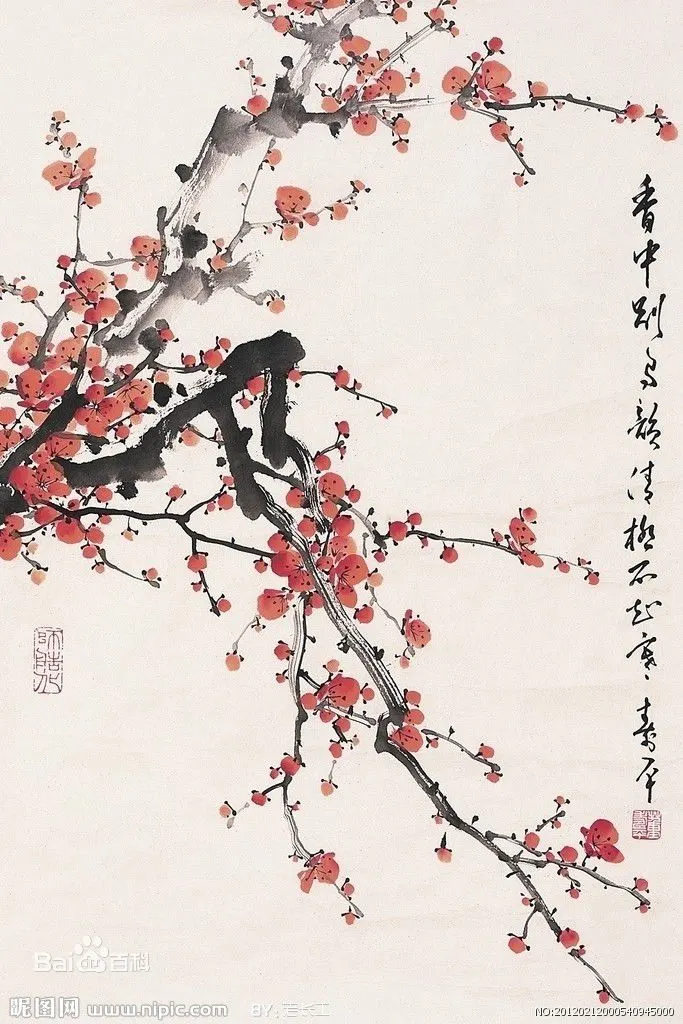 香中別有韻清極不知寒 壽平
Bai du 百科
昵图网 www.nipic.com
NO:20120212000540945000